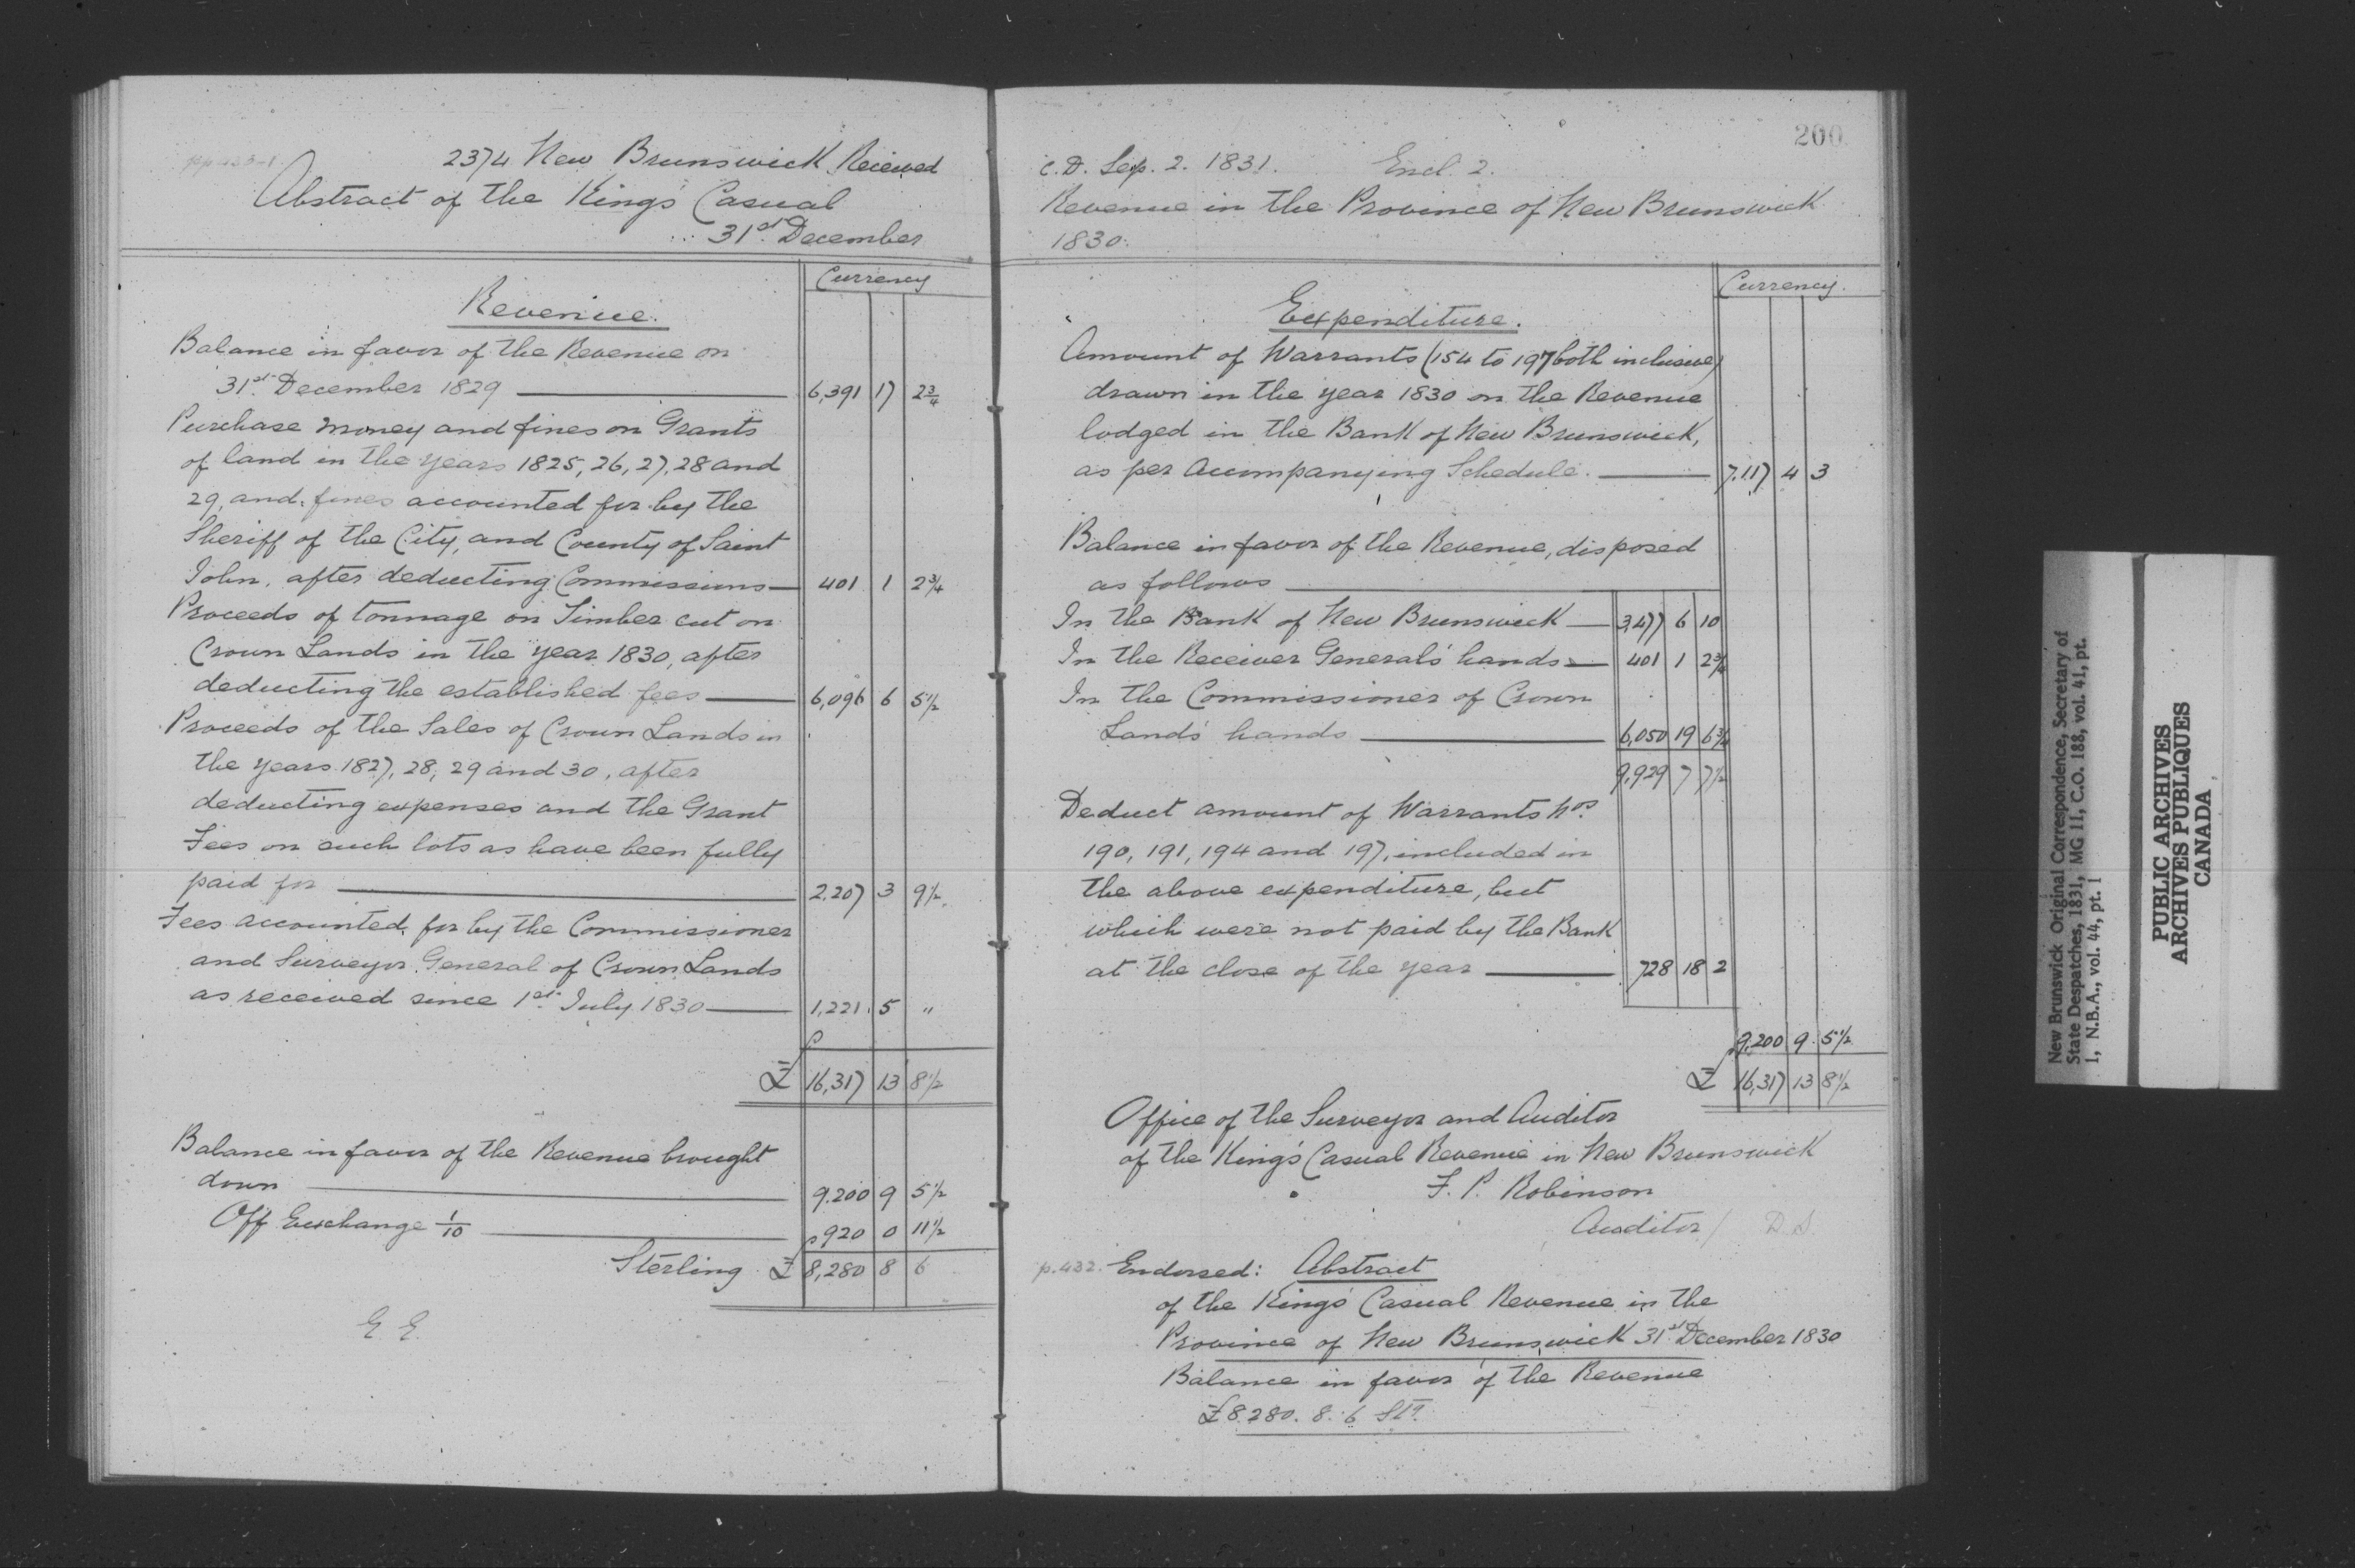 2374 New Brunswick Received
Abstract of the King's Casual
31st December
Currency
Revenue.
Balance in favor of the Revenue on
31st December 1829 6,391 17 2 3/4
Purchase money and fines on Grants
of land in the years 1825, 26, 27, 28 and
29, and fines accounted for by the
Sheriff of the City, and County of Saint
John, after deducting Commissions 401 1 2 3/4
Proceeds of tonnage on Timber cut on
Crown Lands in the year 1830, after
deducting the established fees 6,096 6 5 1/2
Proceeds of the Sales of Crown Lands in
the years 1827, 28, 29 and 30, after
deducting expenses and the Grant
Fees on such lots as have been fully
paid for 2,207 3 9 1/2
Fees accounted for by the Commissioner
and Surveyor General of Crown Lands
as received since 1st July 1830 1,221 5 "
£ 16,317 13 8 1/2
Balance in favor of the Revenue brought
down 9,200 9 5 1/2
Off Exchange 1/10 920 0 11 1/2
Sterling £ 8,280 8 6
G. E.
200
C.D. Sep. 2. 1831. Encl. 2.
Revenue in the Province of New Brunswick
1830.
Currency.
Expenditure.
Amount of Warrants (154 to 197 both inclusive)
drawn in the year 1830 on the Revenue
lodged in the Bank of New Brunswick,
as per Accompanying Schedule. 7,117 4 3
Balance in favor of the Revenue, disposed
as follows
In the Bank of New Brunswick 3,477 6 10
In the Receiver General's hands 401 1 2 3/4
In the Commissioner of Crown
Lands' hands 6,050 19 6 3/4
9,929 7 7 1/2
Deduct amount of Warrants Nos.
190, 191, 194 and 197, included in
the above expenditure, but
which were not paid by the Bank
at the close of the year 728 18 2
9,200 9 5 1/2
£ 16,317 13 8 1/2
Office of the Surveyor and Auditor
of the King's Casual Revenue in New Brunswick
F. P. Robinson
Auditor / D.S.
p.432. Endorsed: Abstract
of the King's Casual Revenue in the
Province of New Brunswick 31st December 1830
Balance in favor of the Revenue
£8.280. 8. 6 Stg.
New Brunswick Original Correspondence, Secretary of
State Despatches, 1831, MG 11, C.O. 188, vol. 41, pt.
1, N.B.A., vol. 44, pt. 1
PUBLIC ARCHIVES
ARCHIVES PUBLIQUES
CANADA